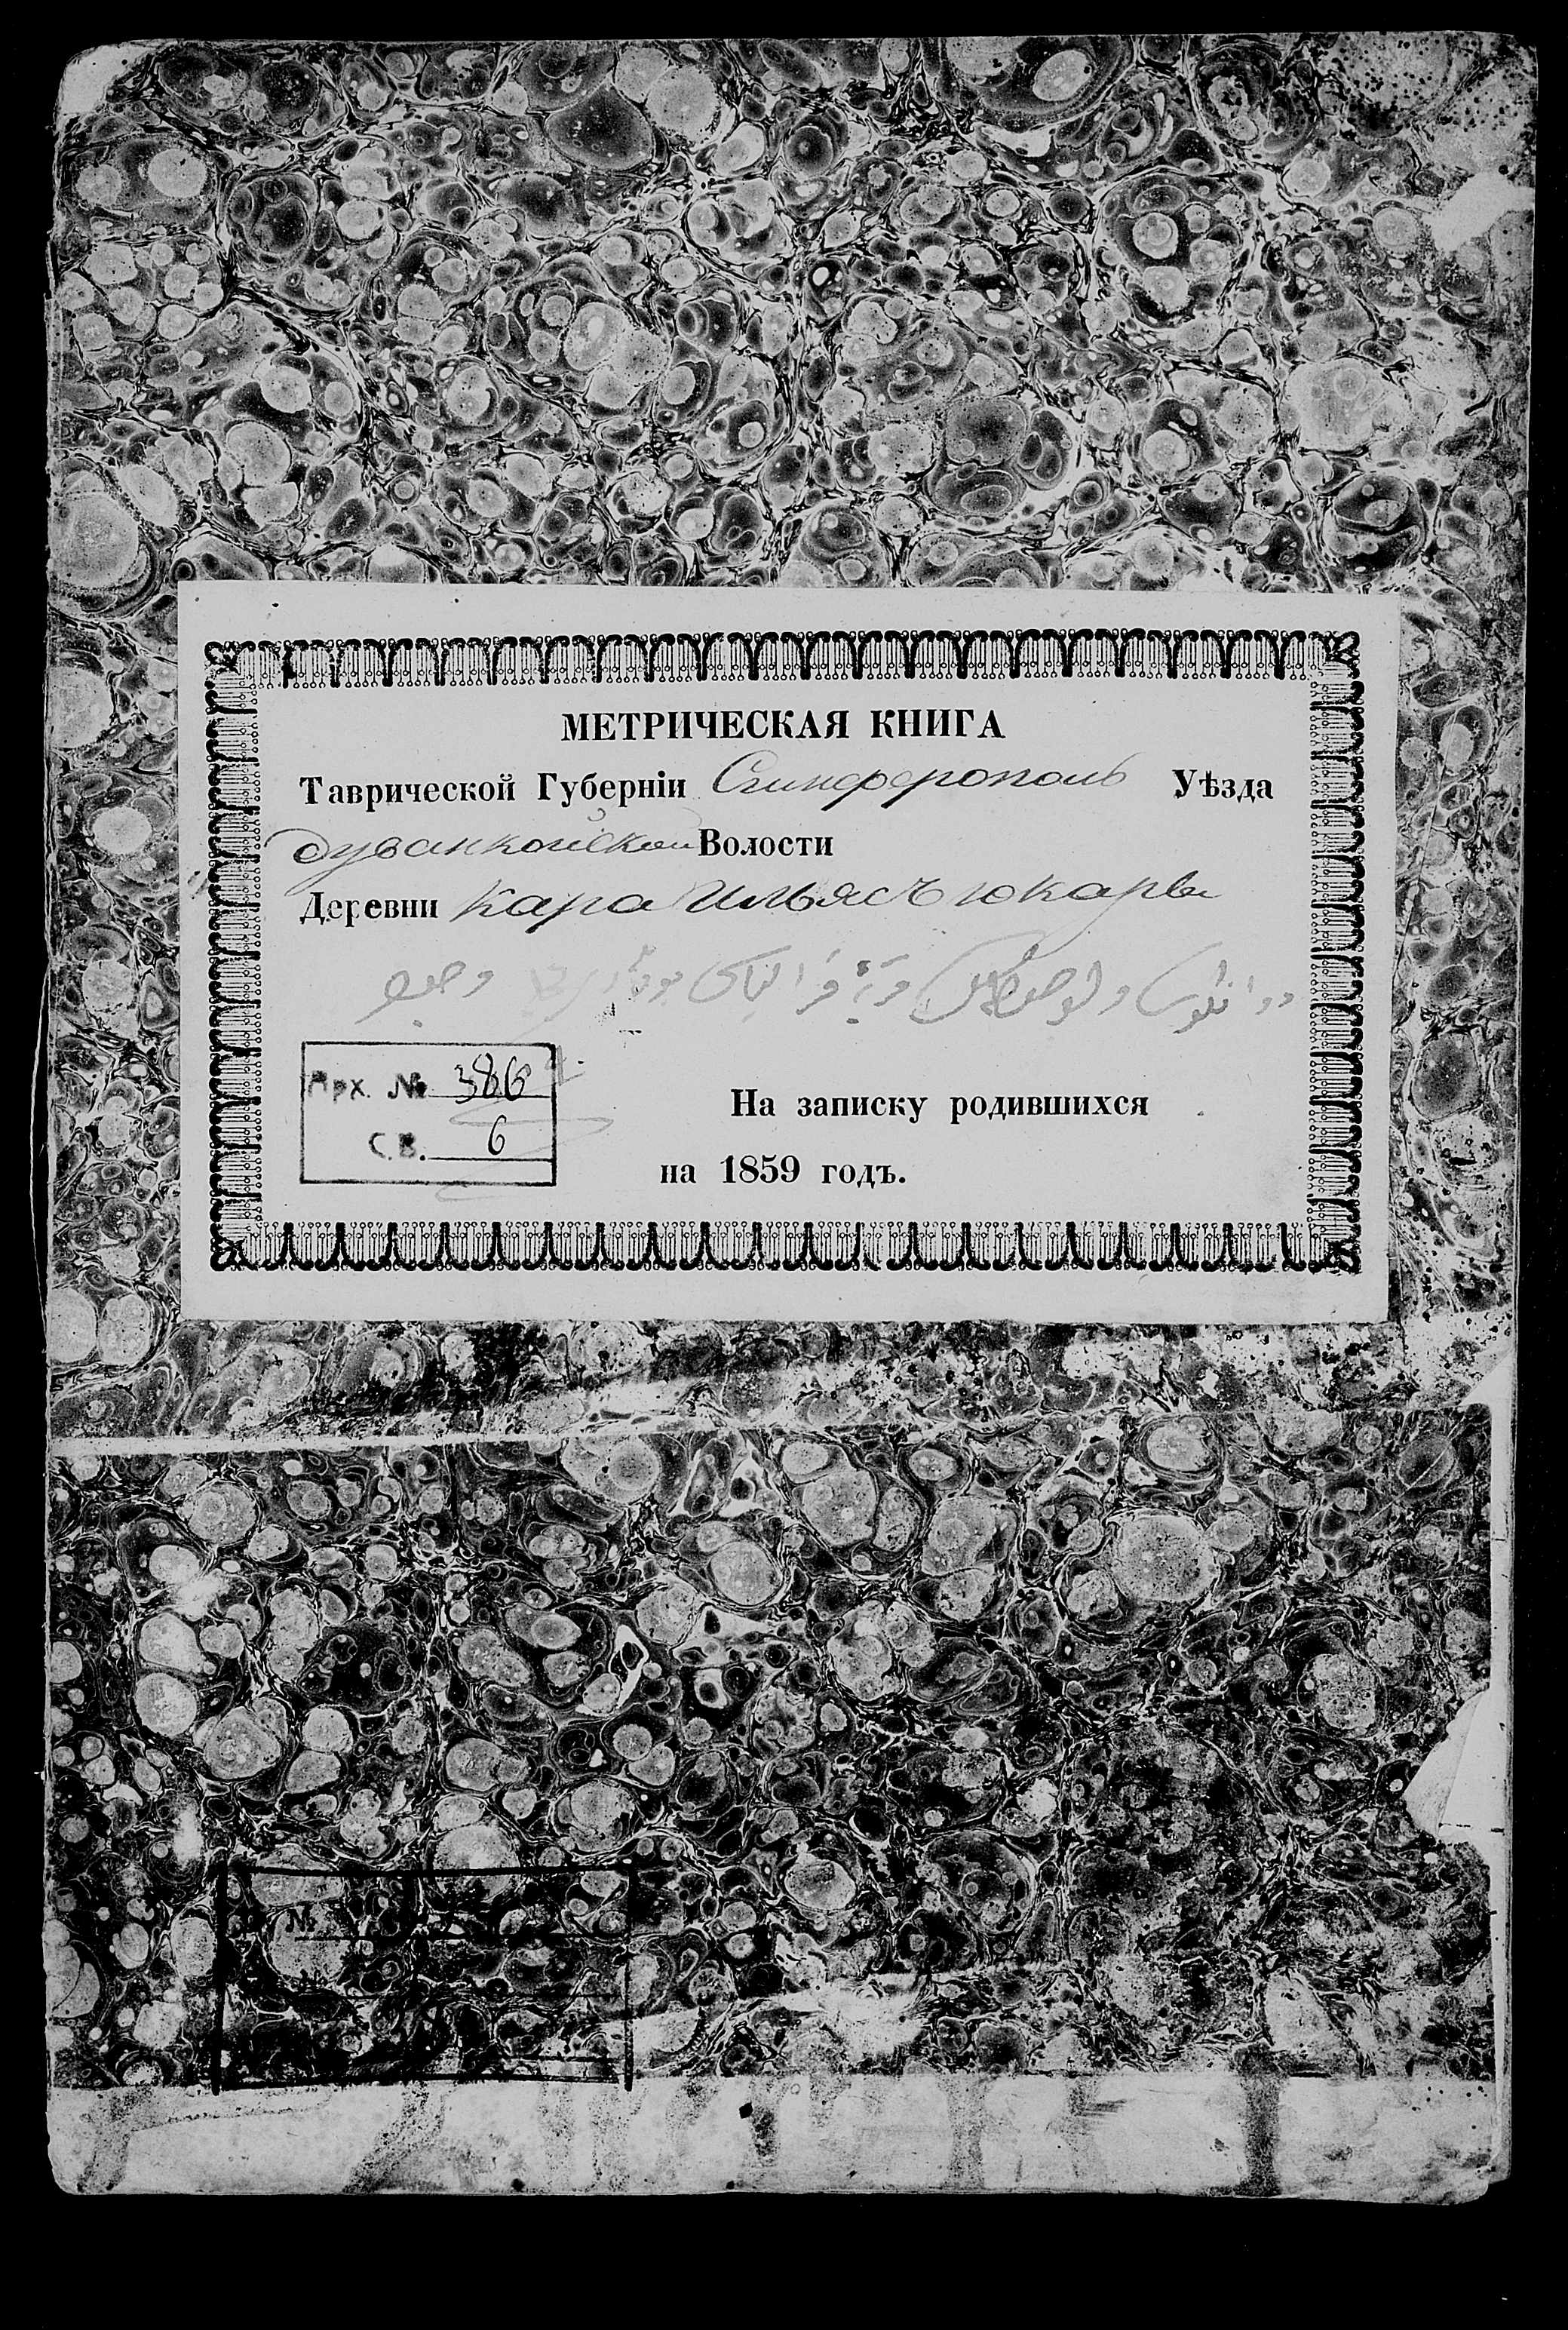 МЕТРИЧЕСКАЯ КНИГА
Таврической Губерніи Симферополь Уѣзда
Дуванкойской Волости
Деревни Кара Ильясъ юкары
قرا الیاس
Арх. № 386
С.В. 6
На записку родившихся
на 1859 годъ.
№